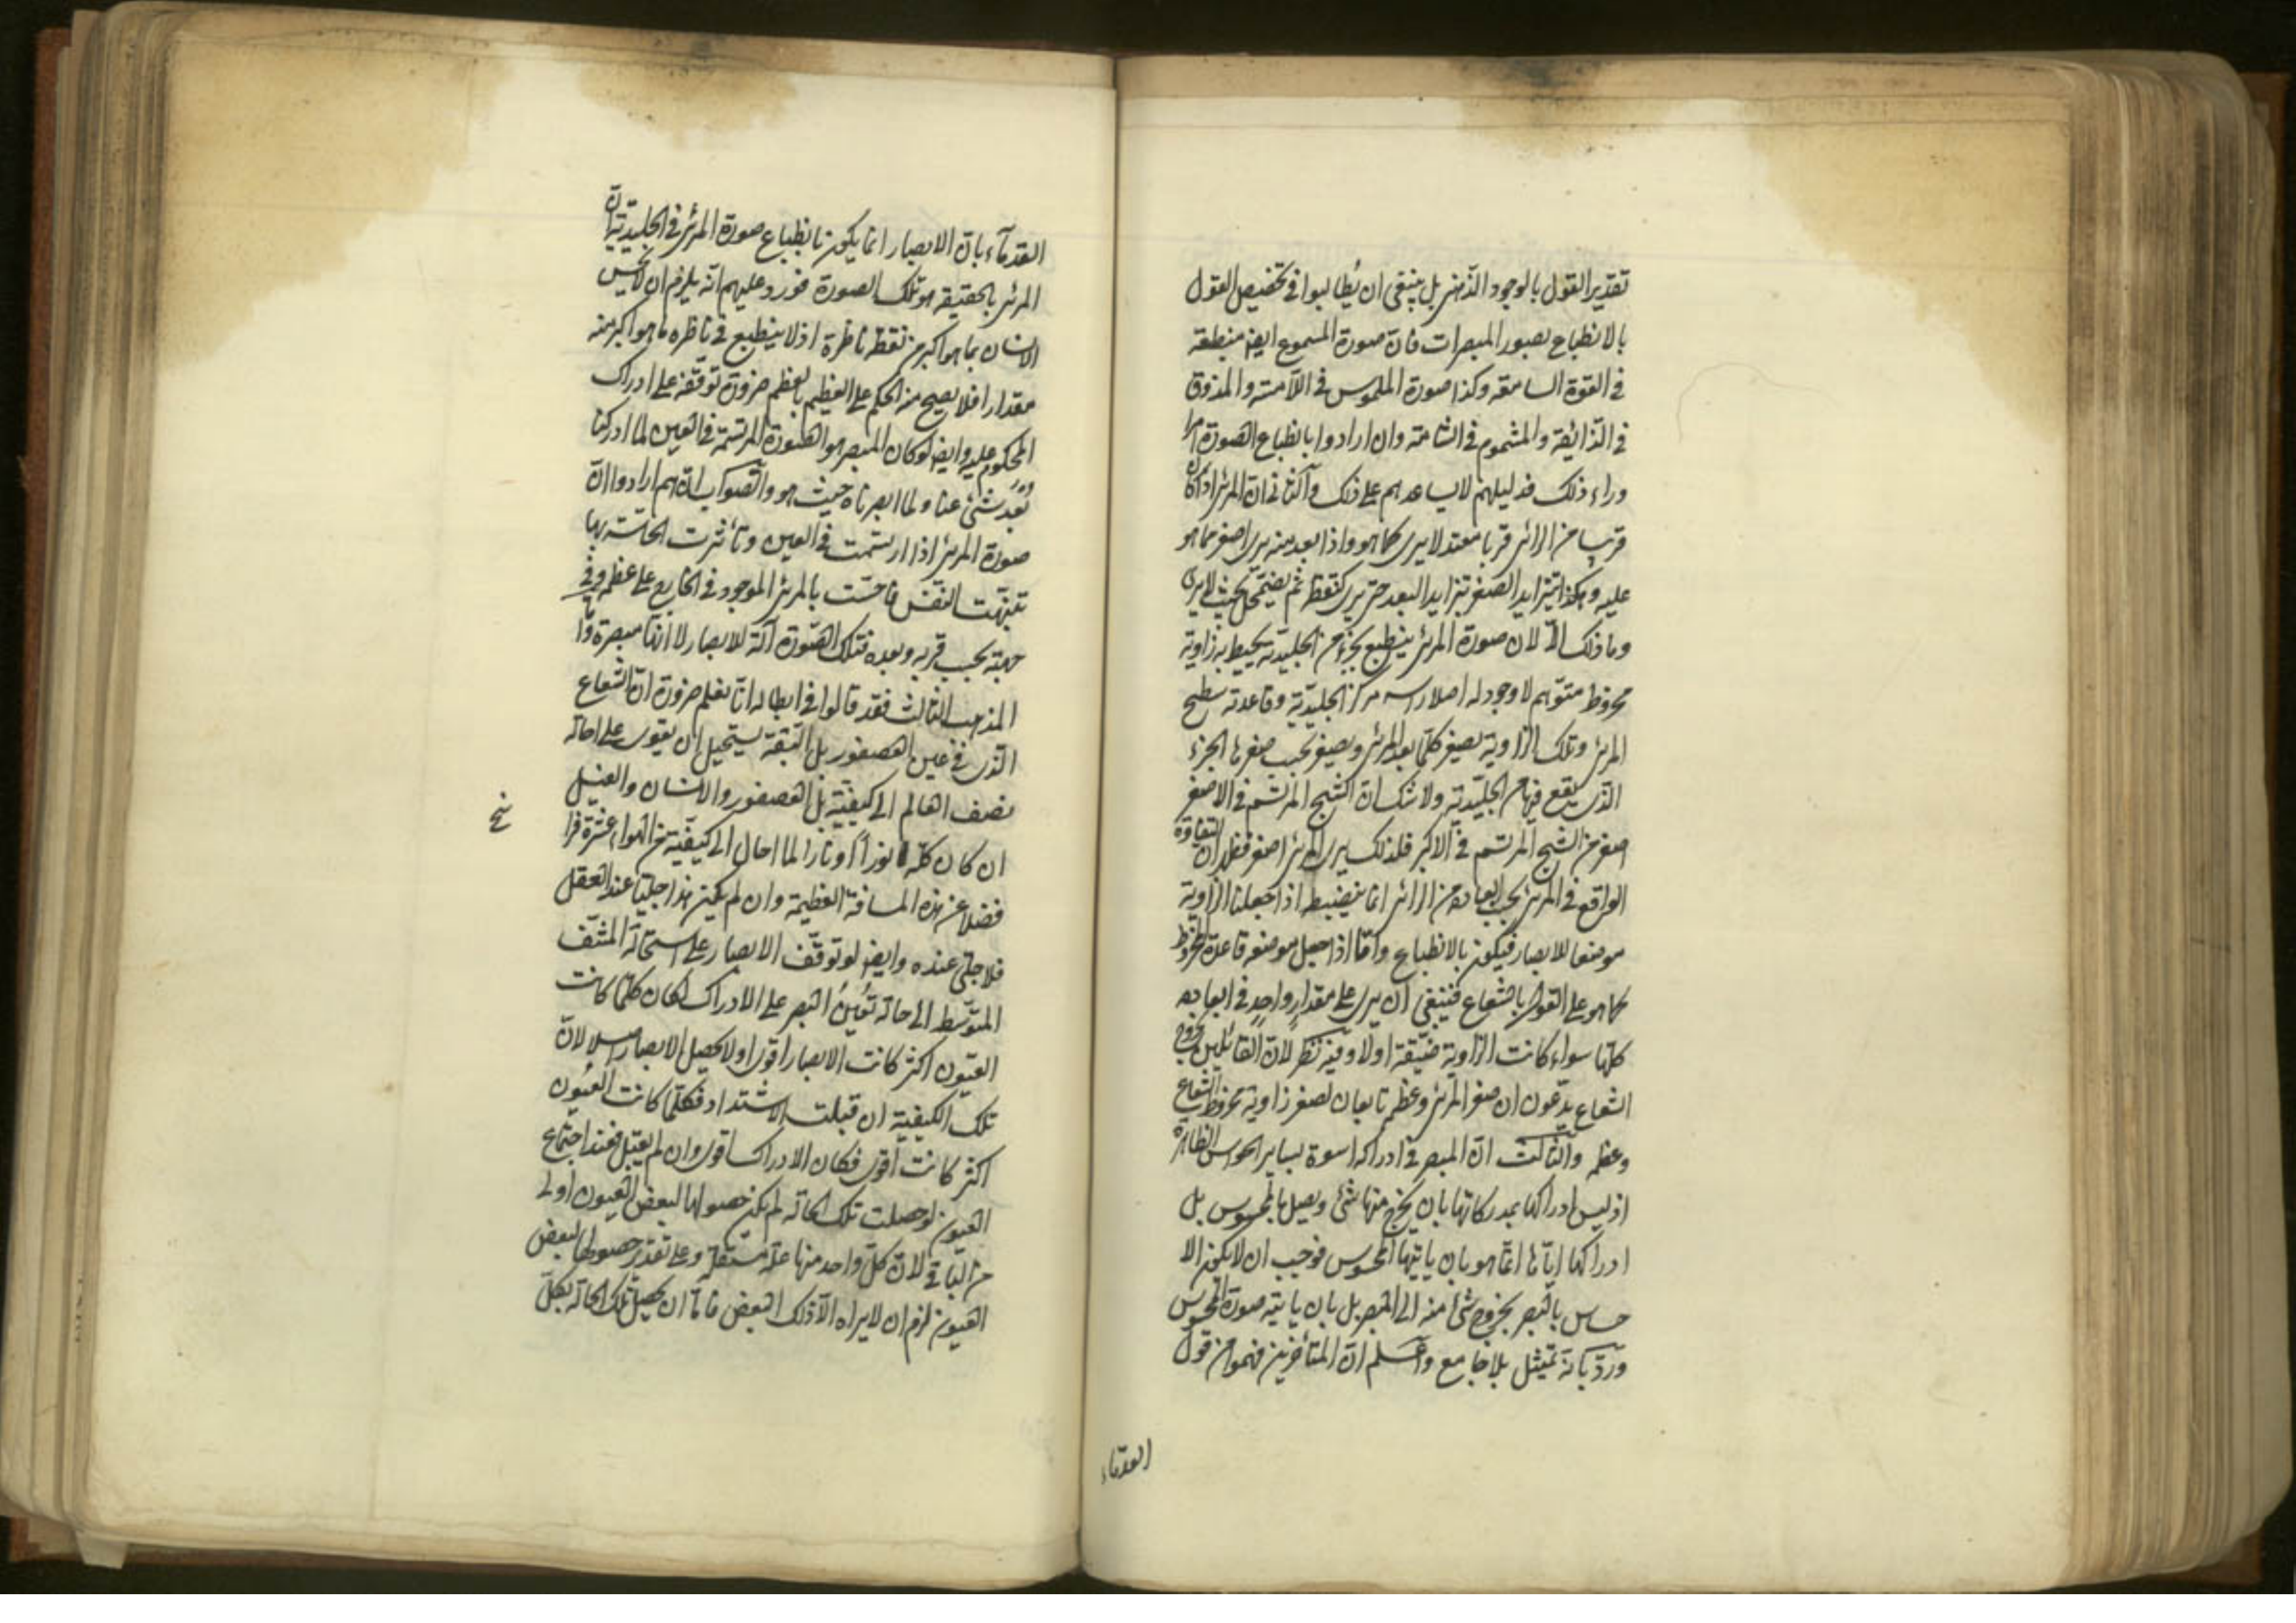 تقدير القول بالوجود الذهنى بل ينبغى ان يُطالبوا فى تخصيص القول
بالانطباع بصور المبصرات فان صورة المسموع ايضا منطبعة
فى القوة السامعة وكذا صورة الملموس فى اللامسة والمذوق
فى الذائقة والمشموم فى الشامة وان ارادوا بانطباع الصورة امرا
وراء ذلك فدليلهم لا يساعدهم على ذلك والثانى ان المرئى اذا كان
قريبا من الرائى قربا معتدلا يرى كما هو واذا بعد منه يرى اصغر مما هو
عليه وهكذا يتزايد الصغر بتزايد البعد حتى يرى كنقطة ثم يضمحل بحيث لا يرى
وما ذلك الا لان صورة المرئى ينطبع بجزء من الجليدية يحيط به زاوية
مخروط متوهم لا وجود له اصلا راسه مركز الجليدية وقاعدته سطح
المرئى وتلك الزاوية يصغر كلما بعد المرئى ويصغر بحسب صغرها الجزء
الذى يقع فيها من الجليدية ولا شك ان الشبح المرتسم فى الاصغر
اصغر من الشبح المرتسم فى الاكبر فلذلك يرى المرئى اصغر فظهر ان التفاوت
الواقع فى المرئى بحسب ابعاده من الرائى انما ينضبط اذا جعلنا الزاوية
موضعا للابصار فيكون بالانطباع واما اذا جعل موضعه قاعدة المخروط
كما هو على القول بالشعاع فينبغى ان يرى على مقدار واحد فى ابعاده
كلها سواء كانت الزاوية ضيقة اولا وفيه نظر لان القائلين بخروج
الشعاع يدّعون ان صغر المرئى وعظمه تابعان لصغر زاوية مخروط الشعاع
وعظمه والثالث ان البصر فى ادراكه اسوة بساير الحواس الظاهرة
اذ ليس ادراكها بمدركاتها بان يخرج منها شئ ويصل بالمحسوس بل
ادراكها اياها انما هو بان ياتيها المحسوس فوجب ان لا يكون الا
حساس بالبصر بخروج شئ منه الى المبصر بل بان ياتيه صورة المحسوس
وردّ بانه تمثيل بلا جامع واعلم ان المتأخرين فهموا من قول
القدماء
القدمآء بان الابصار انما يكون بانطباع صورة المرئى فى الجليدية ان
المرئى بالحقيقة هو تلك الصورة فورد عليهم انه يلزم ان لا يحس
الانسان بما هو اكبر من نقطة ناظره اذ لا ينطبع فى ناظره ما هو اكبر منه
مقدارا فلا يصح منه الحكم على العظيم بالعظم ضرورة توقفه على ادراك
المحكوم عليه وايضا لو كان المبصر هو الصورة المرتسمة فى العين لما ادركنا
بُعد شئ عنا ولما ابصرناه حيث هو والصواب انهم ارادوا ان
صورة المرئى اذا ارتسمت فى العين وتأثرت الحاسة بها
تنبهت النفس فاحسّت بالمرئى الموجود فى الخارج على عظمه وفى
جهته بحسب قربه وبعده فتلك الصورة آلة للابصار لا انها مبصرة وامّا
المذهب الثالث فقد قالوا فى ابطاله انا نعلم ضرورة ان الشعاع
الذى فى عين العصفور بل البقة يستحيل ان يقوى على احالة
نصف العالم الى كيفيته بل العصفور والانسان والفيل
ان كان كله نورا او نارا لما احال الى كيفيته من الهواء عشرة فرا
سخ
فضلا عن هذه المسافة العظيمة وان لم يكن هذا جليا عند العقل
فلا جلى عنده وايضا لو توقف الابصار على استحالة المشف
المتوسط الى حالة تُعِينُ البصر على الادراك لكان كلما كانت
العيون اكثر كانت الابصار اقوى او لا يحصل الابصار اصلا لان
تلك الكيفية ان قبلت الاشتداد فكلما كانت العيون
اكثر كانت اقوى فكان الادراك اقوى وان لم يقبل فعند اجتماع
العيون لو حصلت تلك الحالة لم يكن حصولها لبعض العيون اولى
من الباقى لان كل واحد منها علة مستقلة وعلى تقدير حصولها لبعض
العيون لزم ان لا يراه الا ذلك البعض فاما ان يحصل تلك الحالة بكل